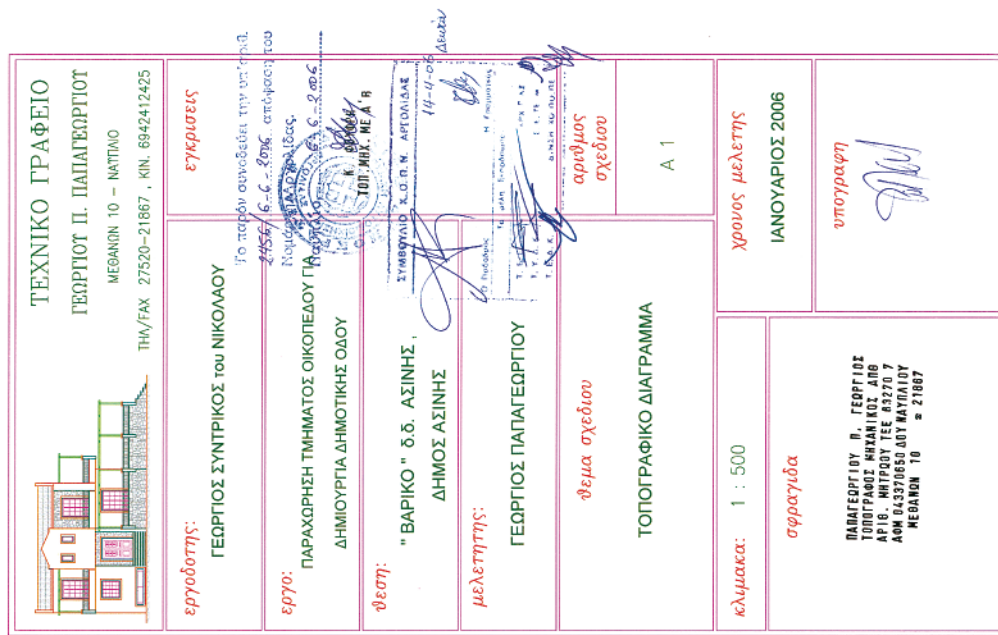 ΤΕΧΝΙΚΟ ΓΡΑΦΕΙΟ
ΓΕΩΡΓΙΟΥ Π. ΠΑΠΑΓΕΩΡΓΙΟΥ
ΜΕΘΑΝΩΝ 10 – ΝΑΥΠΛΙΟ
ΤΗΛ/FAX 27520–21867 , ΚΙΝ. 6942412425
εργοδοτης:
ΓΕΩΡΓΙΟΣ ΣΥΝΤΡΙΚΟΣ του ΝΙΚΟΛΑΟΥ
εργο:
ΠΑΡΑΧΩΡΗΣΗ ΤΜΗΜΑΤΟΣ ΟΙΚΟΠΕΔΟΥ ΓΙΑ
ΔΗΜΙΟΥΡΓΙΑ ΔΗΜΟΤΙΚΗΣ ΟΔΟΥ
θεση:
" ΒΑΡΙΚΟ " δ.δ. ΑΣΙΝΗΣ ,
ΔΗΜΟΣ ΑΣΙΝΗΣ
μελετητης:
ΓΕΩΡΓΙΟΣ ΠΑΠΑΓΕΩΡΓΙΟΥ
θεμα σχεδιου
ΤΟΠΟΓΡΑΦΙΚΟ ΔΙΑΓΡΑΜΜΑ
εγκρισεις
Το παρόν συνοδεύει την υπ'αριθ.
2456/6.6.2006 απόφαση του
Νομάρχη Αργολίδας.
Ναύπλιο 6-6-2006
ΤΟΠ. ΜΗΧ. ΜΕ Α'β
ΣΥΜΒΟΥΛΙΟ Χ.Ο.Π. Ν. ΑΡΓΟΛΙΔΑΣ
14-4-06
αριθμος
σχεδιου
Α 1
κλιμακα: 1 : 500
χρονος μελετης
ΙΑΝΟΥΑΡΙΟΣ 2006
σφραγιδα
ΠΑΠΑΓΕΩΡΓΙΟΥ Π. ΓΕΩΡΓΙΟΣ
ΤΟΠΟΓΡΑΦΟΣ ΜΗΧΑΝΙΚΟΣ ΑΠΘ
ΑΡΙΘ. ΜΗΤΡΩΟΥ ΤΕΕ 83270 7
ΑΦΜ 043370650 ΔΟΥ ΝΑΥΠΛΙΟΥ
ΜΕΘΑΝΩΝ 10 ☎ 21867
υπογραφη